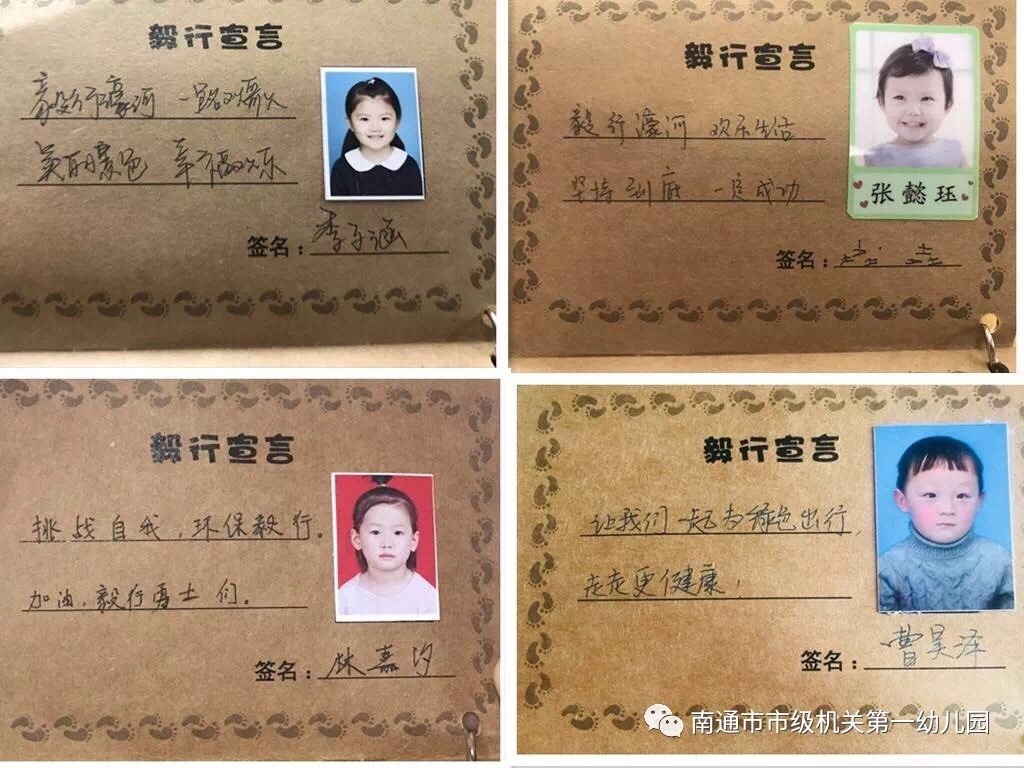 毅行宣言
毅行濠河 一路欢歌
美丽景色 幸福欢乐
签名：李子涵
毅行宣言
毅行濠河 欢乐生活
坚持到底 一定成功.
张懿珏
签名：
毅行宣言
挑战自我，环保毅行。
加油，毅行勇士们。
签名：林嘉汐
毅行宣言
让我们一起为绿色出行，
走走更健康！
签名：曹昊泽
南通市市级机关第一幼儿园